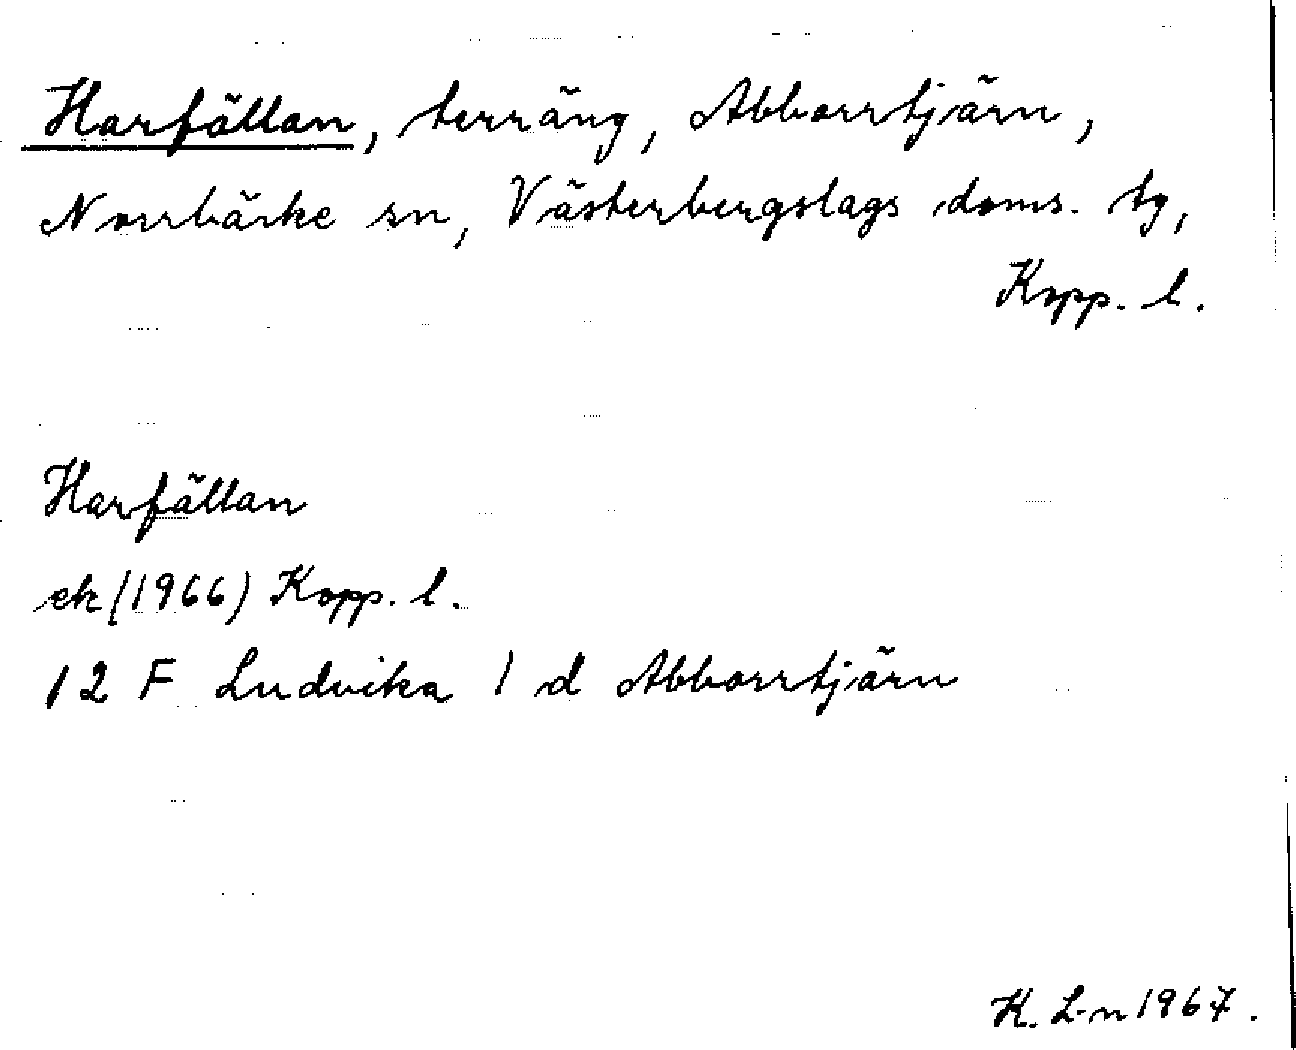 Harfällan, terräng, Abborrtjärn,
Norrbärke sn, Västerbergslags doms. tg,
Kopp. l.
Harfällan
ek (1966) Kopp. l.
12 F Ludvika 1 d Abborrtjärn
K. L-n 1967.